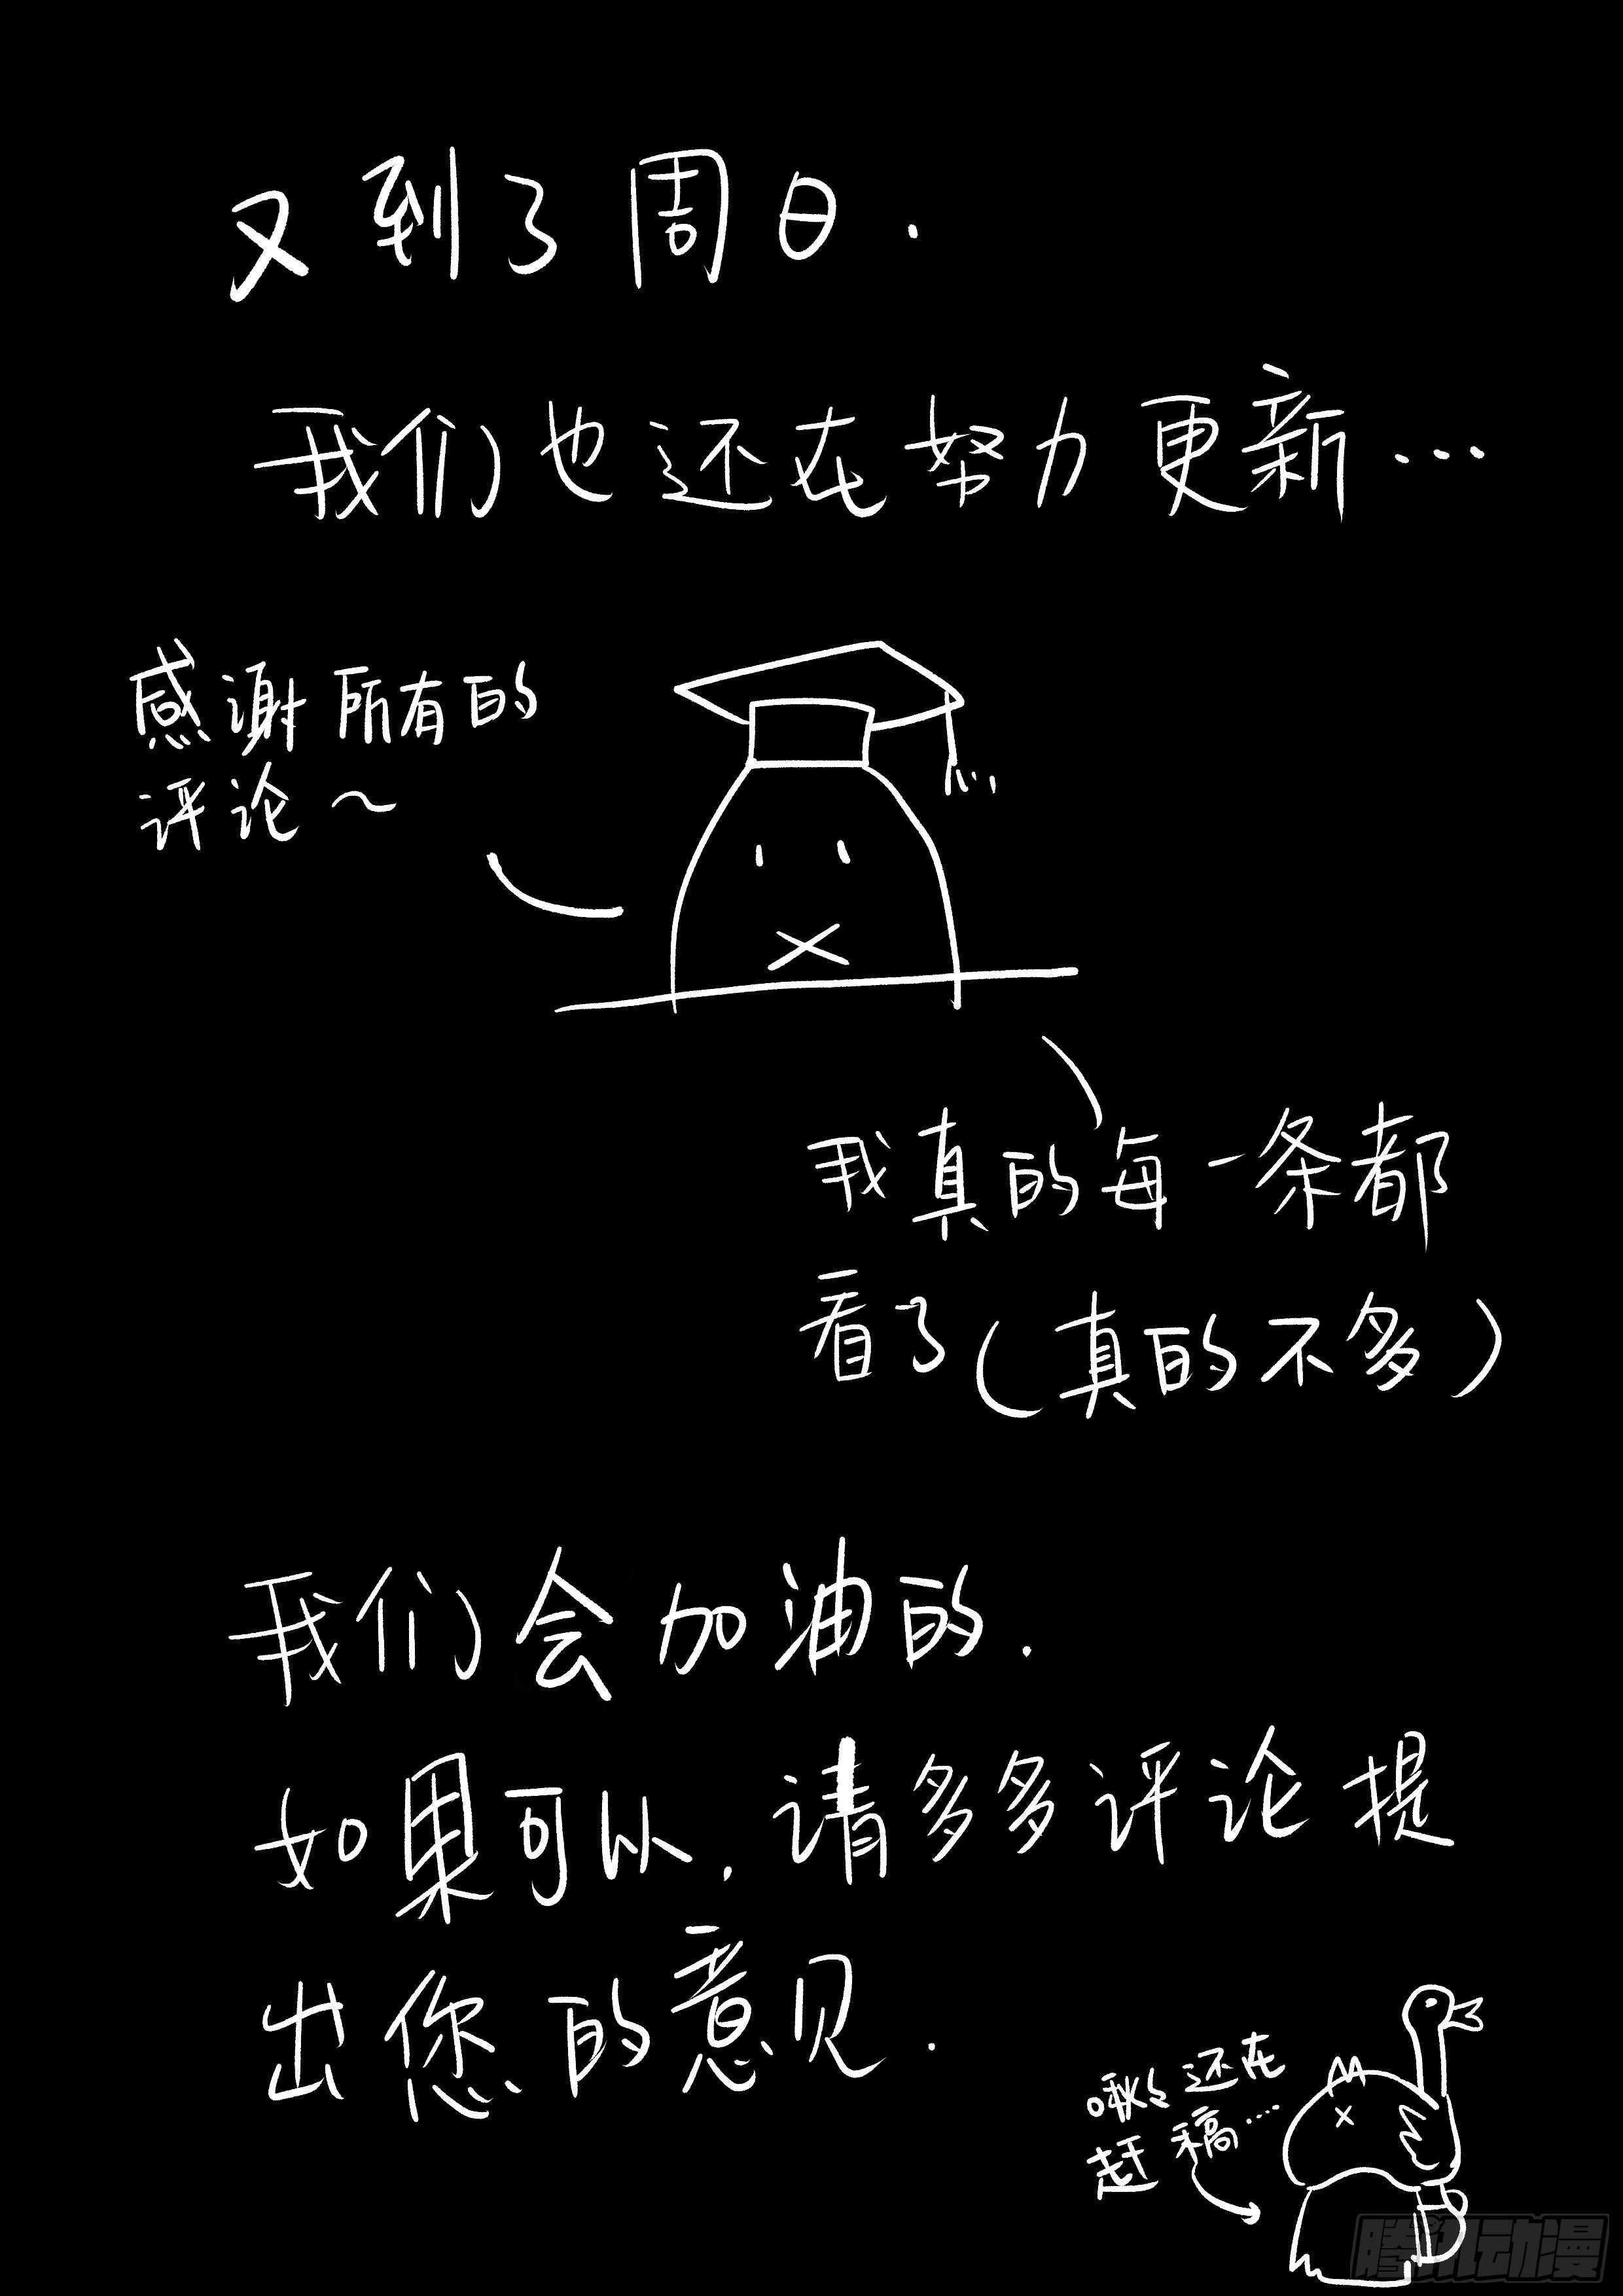 又到了周日.
我们也还在努力更新...
感谢所有的
评论~
我真的每一条都
看了(真的不多)
我们会加油的.
如果可以.请多多评论提
出您的意见.
啾么还在
赶稿...
腾讯动漫